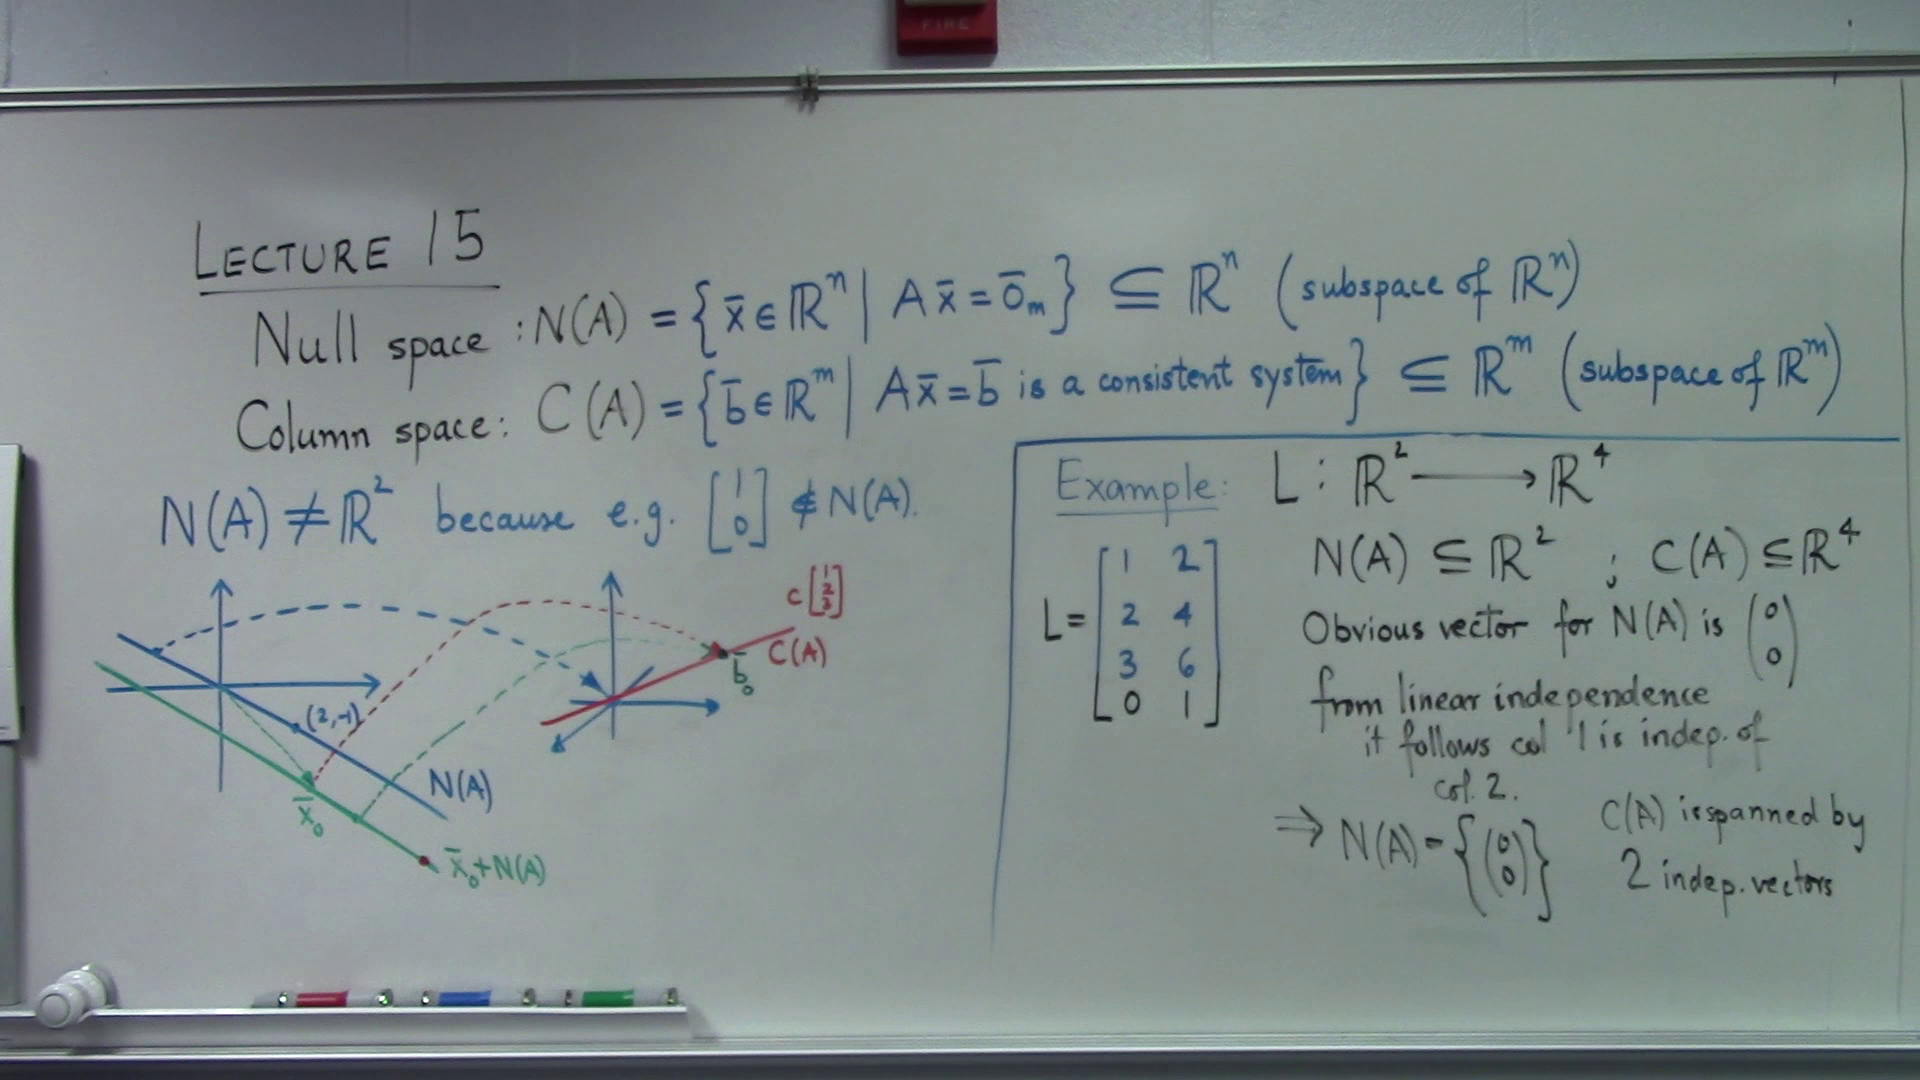 FIRE
LECTURE 15
Null space : N(A) = { x̄ ∈ ℝⁿ | Ax̄ = ō_m } ⊆ ℝⁿ (subspace of ℝⁿ)
Column space: C(A) = { b̄ ∈ ℝᵐ | Ax̄ = b̄ is a consistent system } ⊆ ℝᵐ (subspace of ℝᵐ)
N(A) ≠ ℝ² because e.g. [1 0] ∉ N(A).
c [1 2 3]
C(A)
b̄₀
(2,-1)
N(A)
x̄₀
x̄₀+N(A)
Example: L : ℝ² ⟶ ℝ⁴
N(A) ⊆ ℝ² ; C(A) ⊆ ℝ⁴
L = [1 2
2 4
3 6
0 1]
Obvious vector for N(A) is (0 0)
from linear independence
it follows col 1 is indep. of
col. 2.
⇒ N(A) = {(0 0)}
C(A) is spanned by
2 indep. vectors